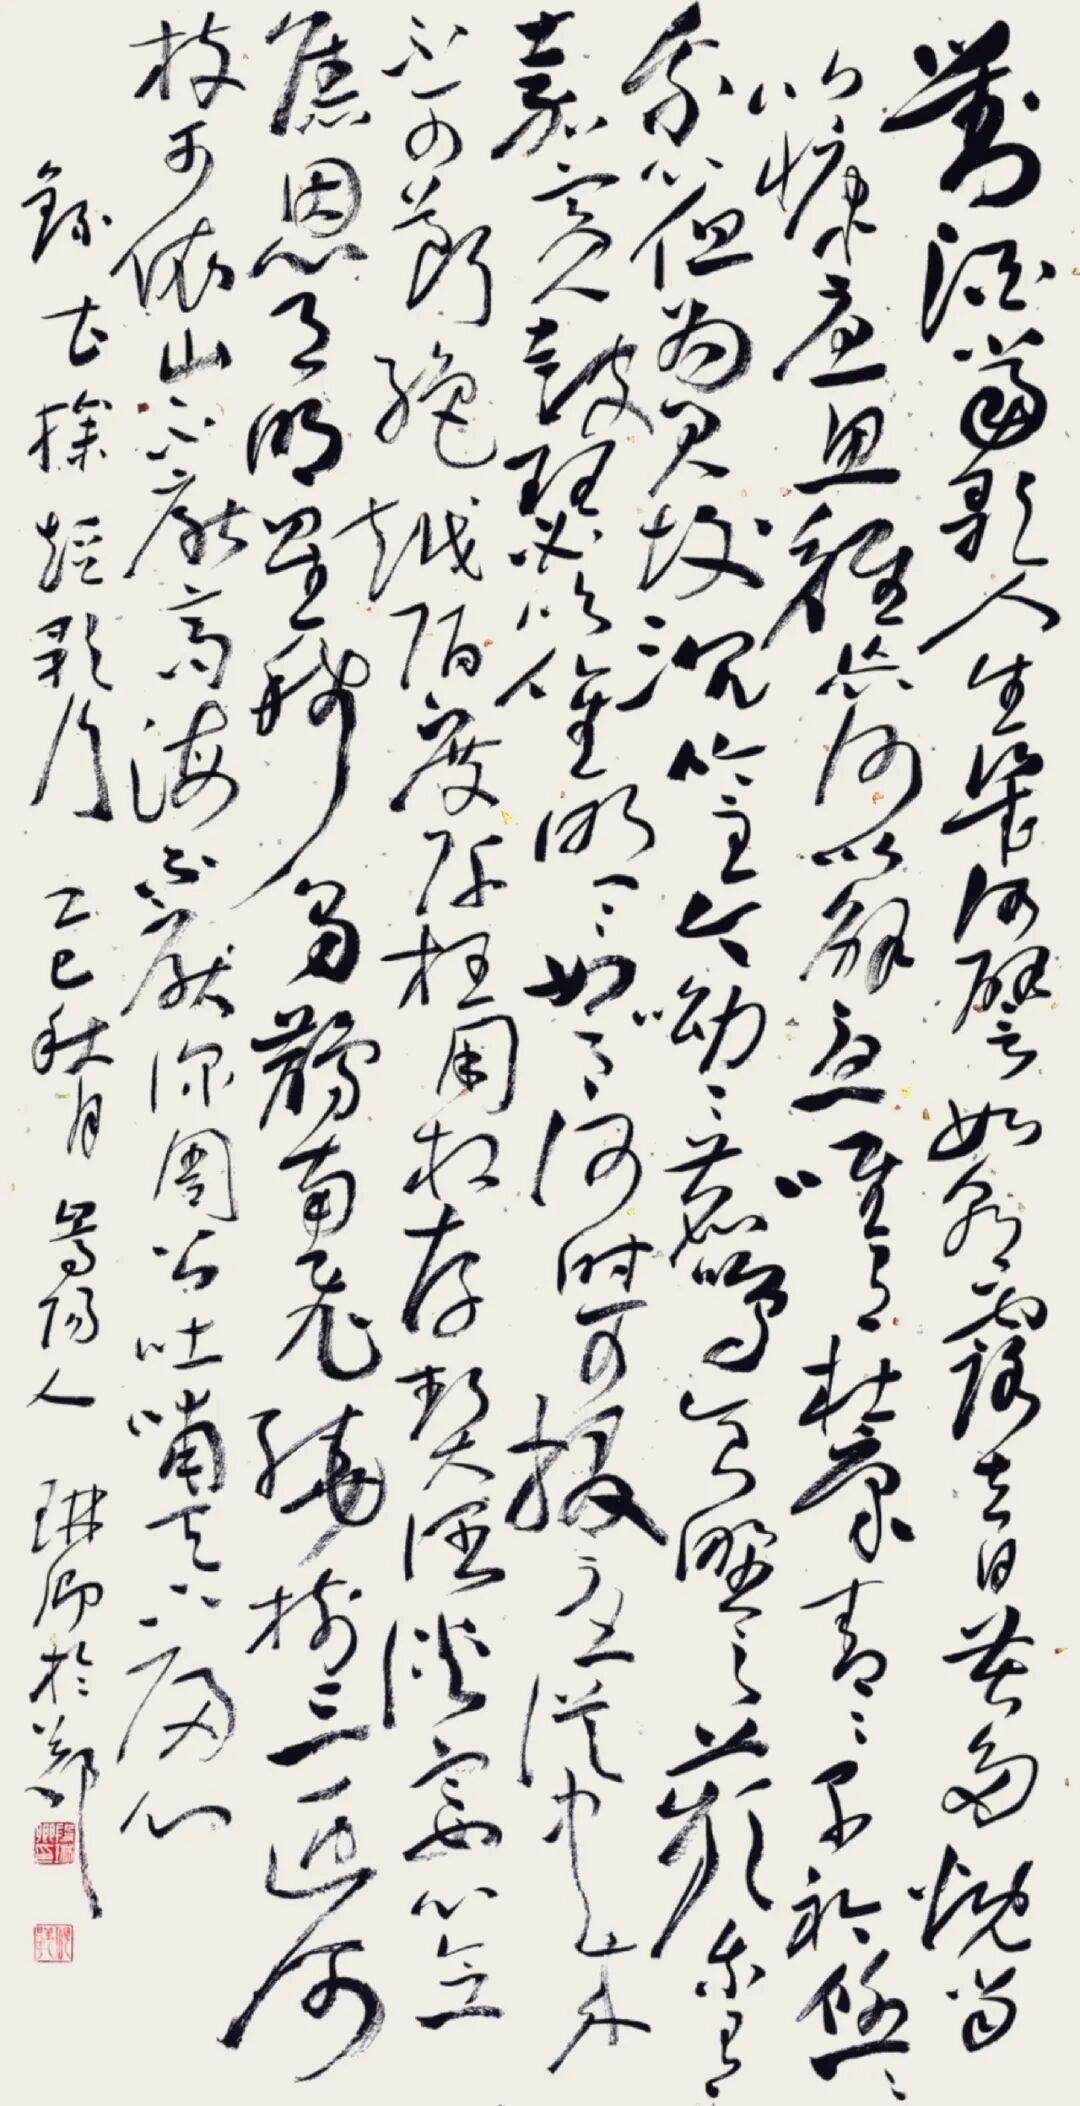 對酒當歌人生幾何譬如朝露去日苦多慨當
以慷憂思難忘何以解憂唯有杜康青青子衿悠悠
我心但為君故沉吟至今呦呦鹿鳴食野之蘋我有
嘉賓鼓瑟吹笙明明如月何時可掇憂從中來
不可斷絕越陌度阡枉用相存契闊談讌心念
舊恩月明星稀烏鵲南飛繞樹三匝何
枝可依山不厭高海不厭深周公吐哺天下歸心
錄曹操短歌行 乙巳秋月 嵩陽人 琳卿於鄭